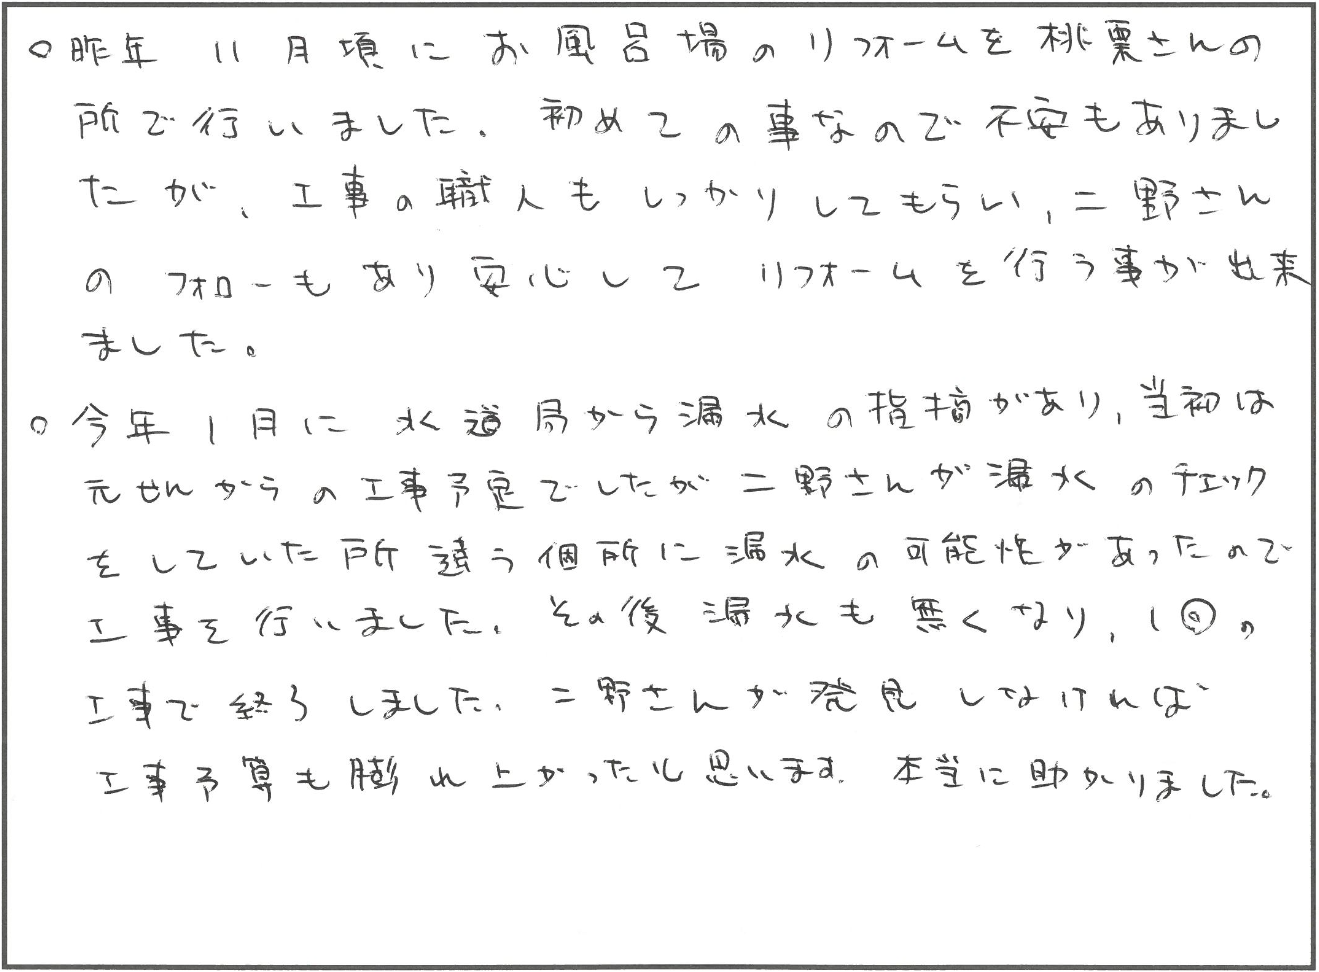 ○昨年11月頃にお風呂場のリフォームを桃栗さんの
所で行いました。初めての事なので不安もありまし
たが、工事の職人もしっかりしてもらい、二野さん
のフォローもあり安心してリフォームを行う事が出来
ました。
○今年1月に水道局から漏水の指摘があり、当初は
元せんからの工事予定でしたが二野さんが漏水のチェック
をしていた所違う個所に漏水の可能性があったので
工事を行いました。その後漏水も無くなり、1回の
工事で終了しました。二野さんが発見しなければ
工事予算も膨れ上がったと思います。本当に助かりました。